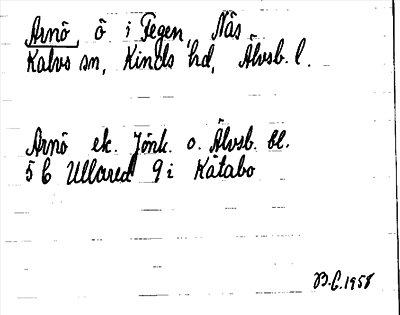 Arnö ö i Fegen, Näs
Kalvs sn, Kinds hd, Älvsb. l.
Arnö ek. Jönk. o. Älvsb. bl.
5 C Ullared 9 i Kätabo
B.G. 1958